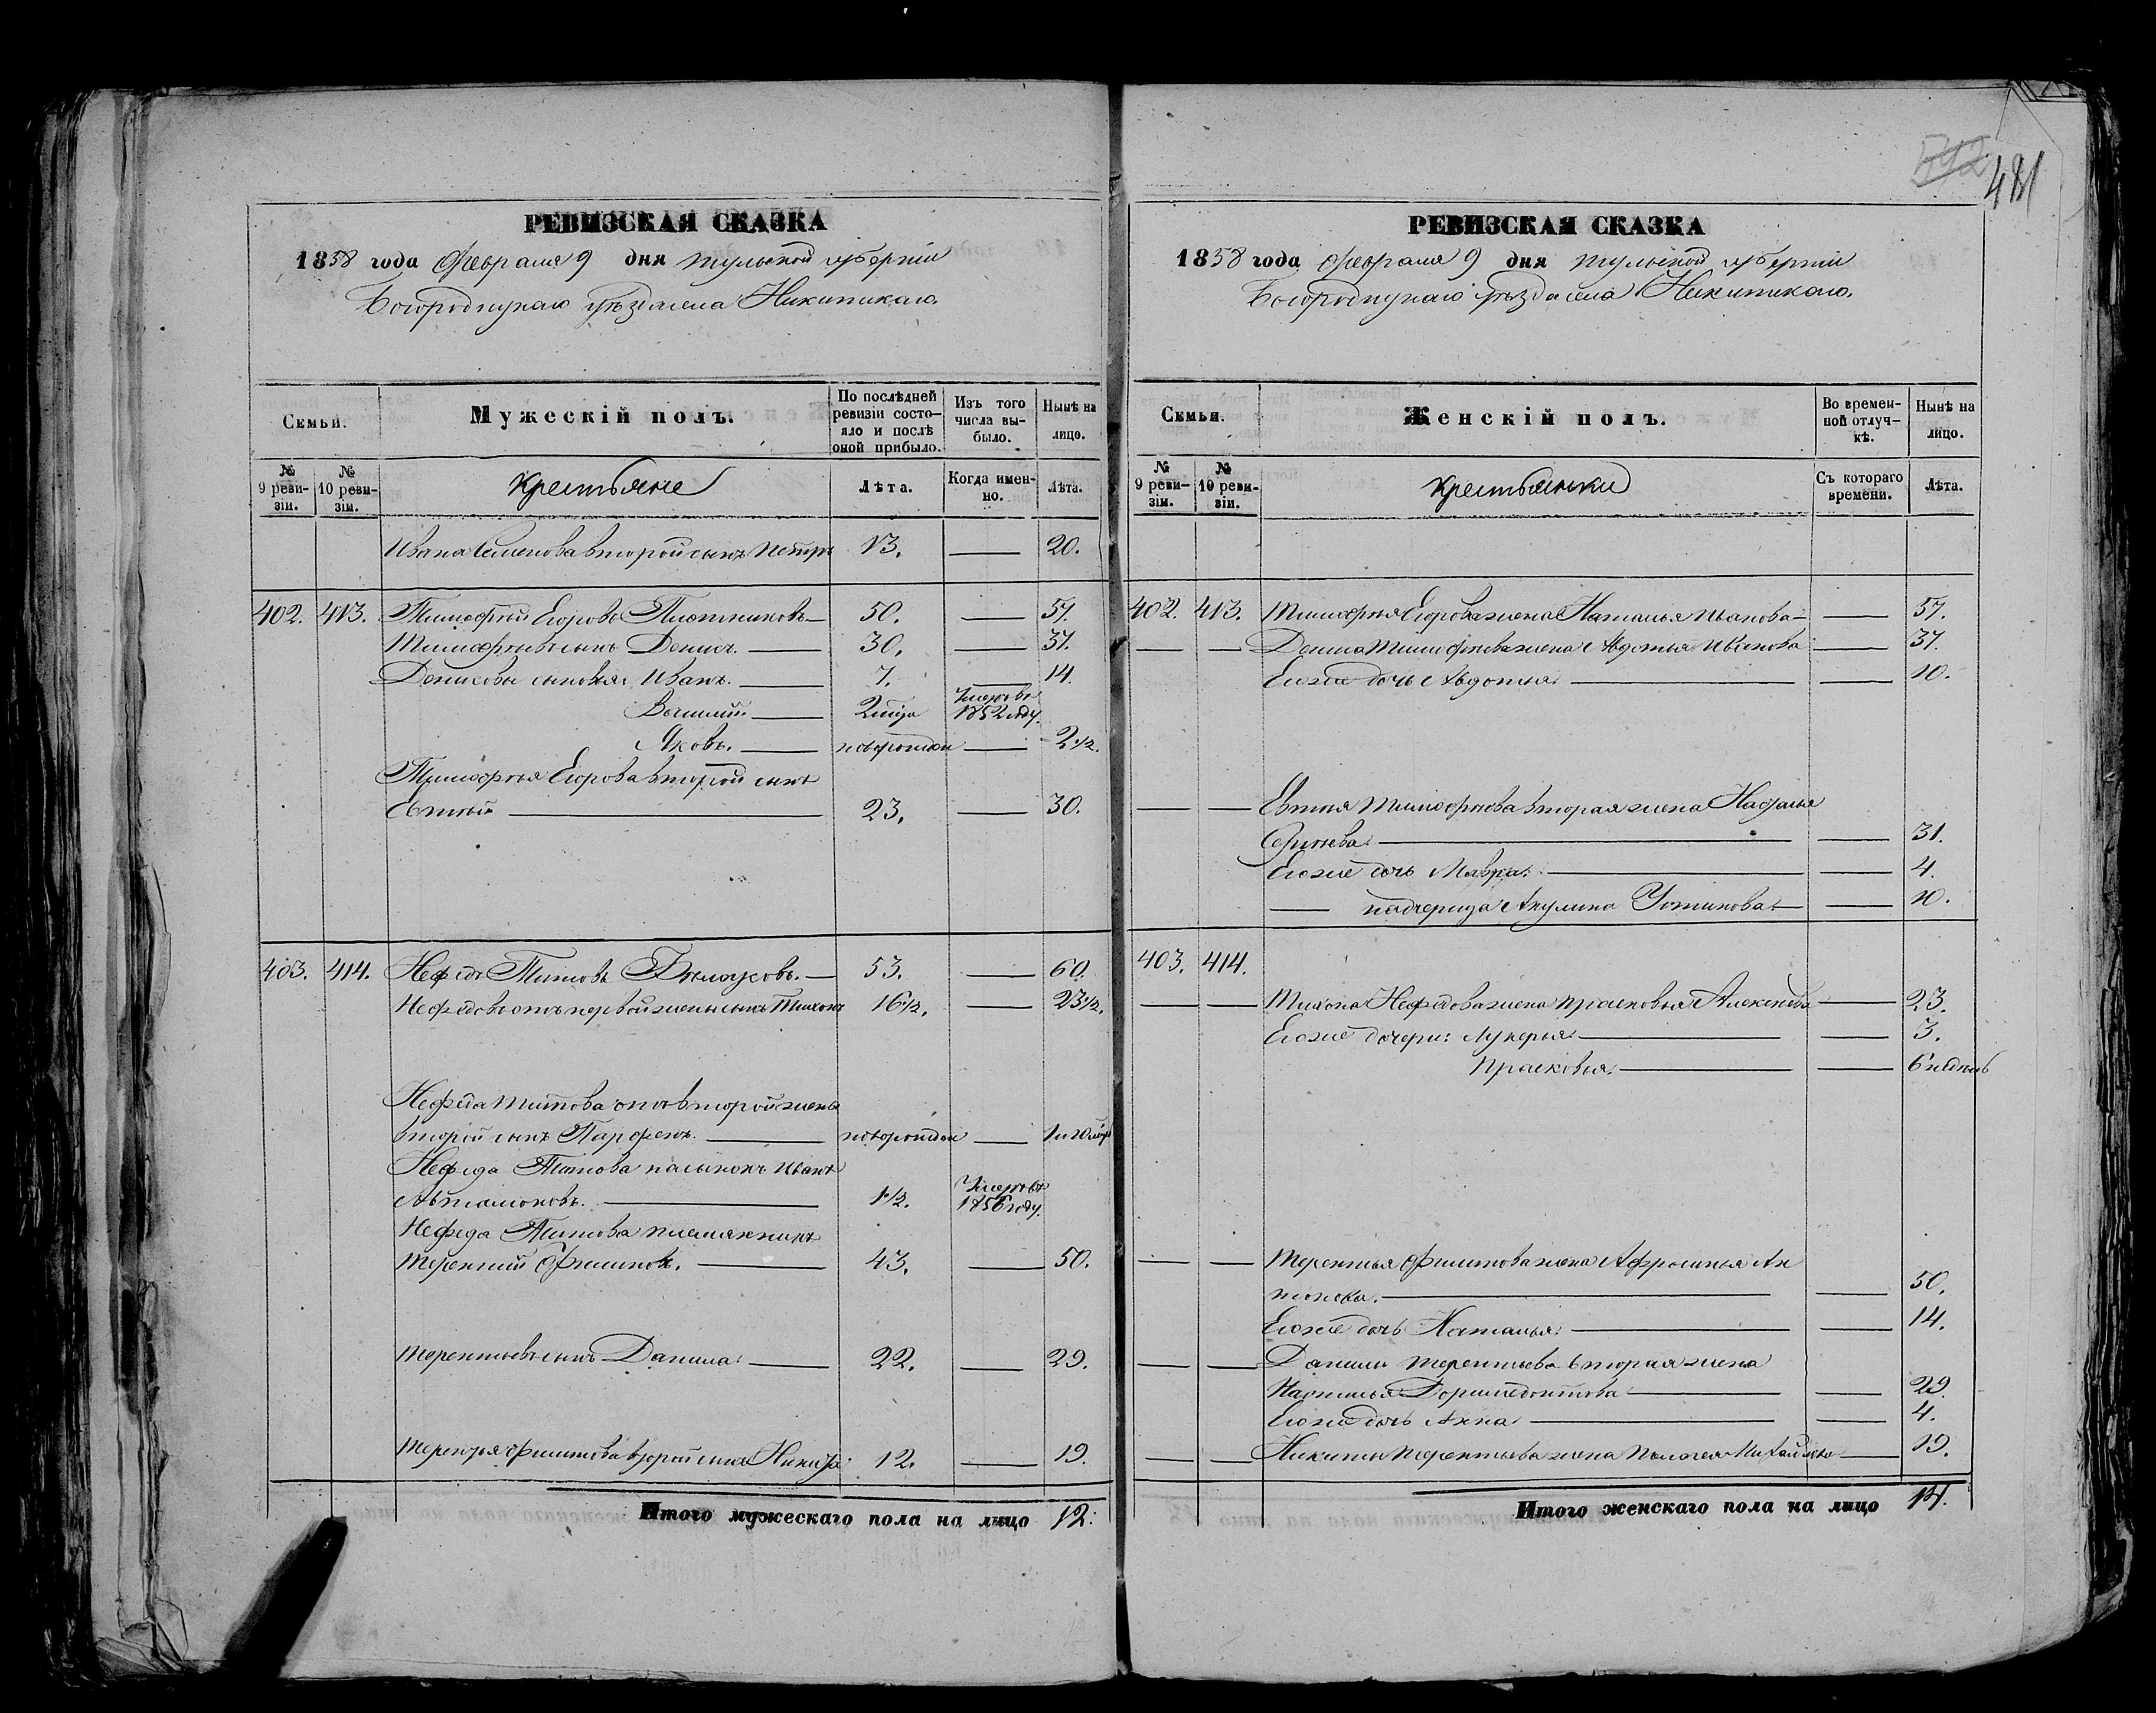 481
РЕВИЗСКАЯ СКАЗКА
1858 года Февраля 9 дня Тульской губерніи
Богородицкаго уѣзда села Никитскаго.
Семьи. Мужескій полъ. По послѣдней ревизіи состояло и послѣ оной прибыло. Изъ того числа выбыло. Нынѣ на лицо.
№ 9 ревизіи. № 10 ревизіи. Крестьяне Лѣта. Когда именно. Лѣта.
Ивана Семенова второй сынъ Петръ 13. 20.
402. 413. Тимофей Егоровъ 50. 57.
Тимофѣевъ сынъ Денисъ. 30. 37.
Денисовы сыновья: Иванъ. 7. 14.
Василий. 2 года Умеръ въ 1852 году.
Яковъ. новорожден 2 1/2.
Тимофѣя Егорова второй сынъ
Евтей 23. 30.
403. 414. Нефедъ Титовъ Бѣлоусовъ. 53. 60.
Нефедовъ отъ первой жены сынъ Тихонъ 16 1/2. 23 1/2.
Нефеда Титова отъ второй жены
второй сынъ Парфенъ. новорожден
Нефеда Титова пасынокъ Иванъ
Автамоновъ. 1 1/2. Умеръ въ 1856 году.
Нефеда Титова племянникъ
Терентий Филиповъ. 43. 50.
Терентьевъ сынъ Данила. 22. 29.
Терентья Филипова второй сынъ Никита 12. 19.
Итого мужескаго пола на лицо 12.
РЕВИЗСКАЯ СКАЗКА
1858 года Февраля 9 дня Тульской губерніи
Богородицкаго уѣзда села Никитскаго.
Семьи. Женскій полъ. Во временной отлучкѣ. Нынѣ на лицо.
№ 9 ревизіи. № 10 ревизіи. Крестьянки Съ котораго времени. Лѣта.
402. 413. Тимофѣя Егорова жена Наталья Иванова 57.
Дениса Тимофѣева жена Авдотья Иванова 37.
Ево же дочь Авдотья. 10.
Евтея Тимофѣева вторая жена Наталья
Сергѣева. 31.
Ево же дочь Мавра. 4.
падчерица Акулина Устинова. 10.
403. 414.
Тихона Нефедова жена Прасковья Алексѣева 23.
Ево же дочери: Лукерья. 3.
Прасковья. 6 недѣль
Терентья Филипова жена Афросинья Ан
тонова. 50.
Ево же дочь Наталья. 14.
Данилы Терентьева вторая жена
29.
Ево же дочь Анна. 4.
Никиты Терентьева жена Пелагея Михайлова 19.
Итого женскаго пола на лицо 14.